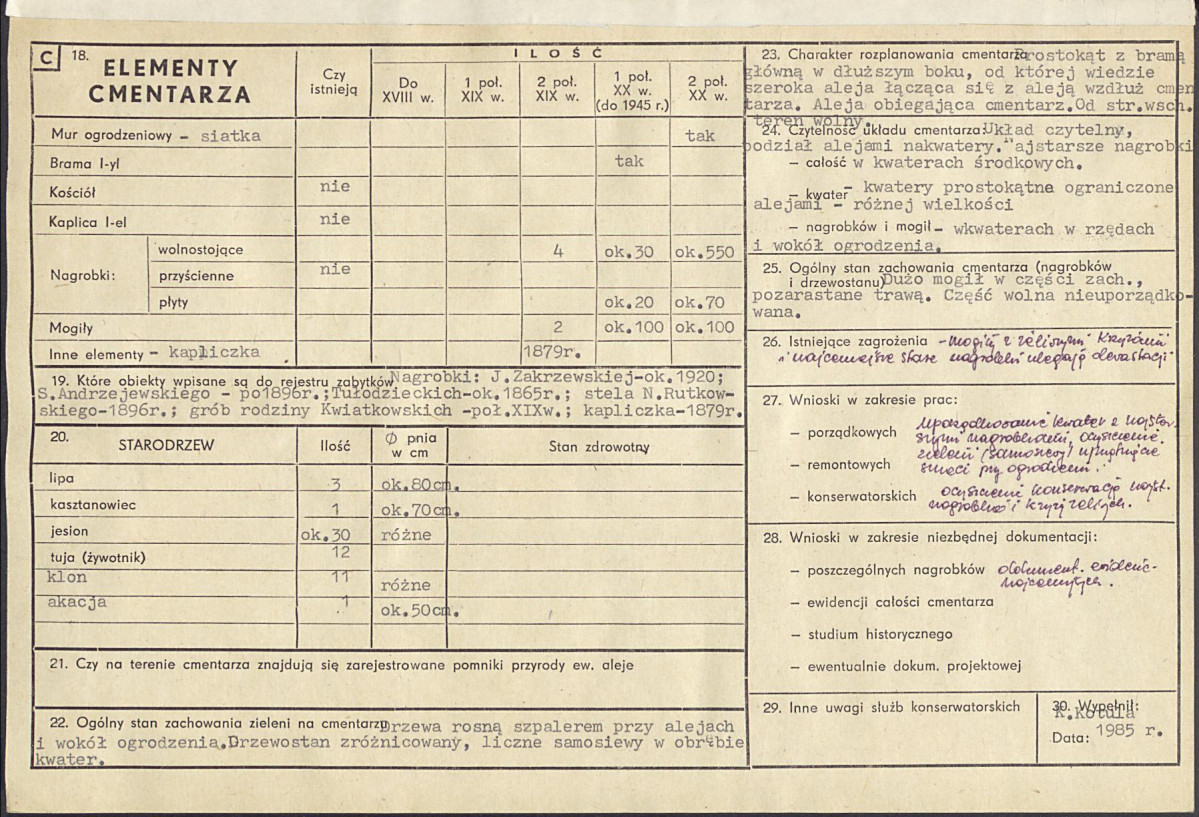 C 18. ELEMENTY CMENTARZA
Czy istnieją
I L O Ś Ć
Do XVIII w.
1 poł. XIX w.
2 poł. XIX w.
1 poł. XX w. (do 1945 r.)
2 poł. XX w.
Mur ogrodzeniowy - siatka tak
Brama I-yl tak
Kościół nie
Kaplica I-el nie
Nagrobki:
wolnostojące 4 ok.30 ok.550
przyścienne nie
płyty ok.20 ok.70
Mogiły 2 ok.100 ok.100
Inne elementy - kapliczka 1879r.
19. Które obiekty wpisane są do rejestru zabytków Nagrobki: J.Zakrzewskiej-ok.1920;
S.Andrzejewskiego - po1896r.;Tułodzieckich-ok.1865r.; stela N.Rutkow-
skiego-1896r.; grób rodziny Kwiatkowskich -poł.XIXw.; kapliczka-1879r.
20. STARODRZEW Ilość Ø pnia w cm Stan zdrowotny
lipa 3 ok.80cm.
kasztanowiec 1 ok.70cm.
jesion ok.30 różne
tuja (żywotnik) 12
klon 11 różne
akacja 1 ok.50cm.
21. Czy na terenie cmentarza znajdują się zarejestrowane pomniki przyrody ew. aleje
22. Ogólny stan zachowania zieleni na cmentarzu Drzewa rosną szpalerem przy alejach
i wokół ogrodzenia.Drzewostan zróżnicowany, liczne samosiewy w obrębie
kwater.
23. Charakter rozplanowania cmentarza Prostokąt z bramą
główną w dłuższym boku, od której wiedzie
szeroka aleja łącząca się z aleją wzdłuż cmen
tarza. Aleja obiegająca cmentarz.Od str.wsch.
teren wolny.
24. Czytelność układu cmentarza: Układ czytelny,
podział alejami nakwatery. Najstarsze nagrobki
– całość w kwaterach środkowych.
– kwater - kwatery prostokątne ograniczone
alejami - różnej wielkości
– nagrobków i mogił - wkwaterach w rzędach
i wokół ogrodzenia.
25. Ogólny stan zachowania cmentarza (nagrobków
i drzewostanu) Dużo mogił w części zach.,
pozarastane trawą. Część wolna nieuporządko-
wana.
26. Istniejące zagrożenia - mogiły z żeliwnymi krzyżami
i najcenniejsze stare nagrobki ulegają dewastacji
27. Wnioski w zakresie prac:
– porządkowych uporządkowanie kwater z najstar-
szymi nagrobkami, oczyszczenie
zieleni (samosiewy)
– remontowych śmieci przy ogrodzeniu.
– konserwatorskich oczyszczenie konserwacja najst.
nagrobków i krzyży żeliwnych.
28. Wnioski w zakresie niezbędnej dokumentacji:
– poszczególnych nagrobków dokument. ewidenc.
najcenniejszych.
– ewidencji całości cmentarza
– studium historycznego
– ewentualnie dokum. projektowej
29. Inne uwagi służb konserwatorskich
30. Wypełnił:
K.Kotula
Data: 1985 r.